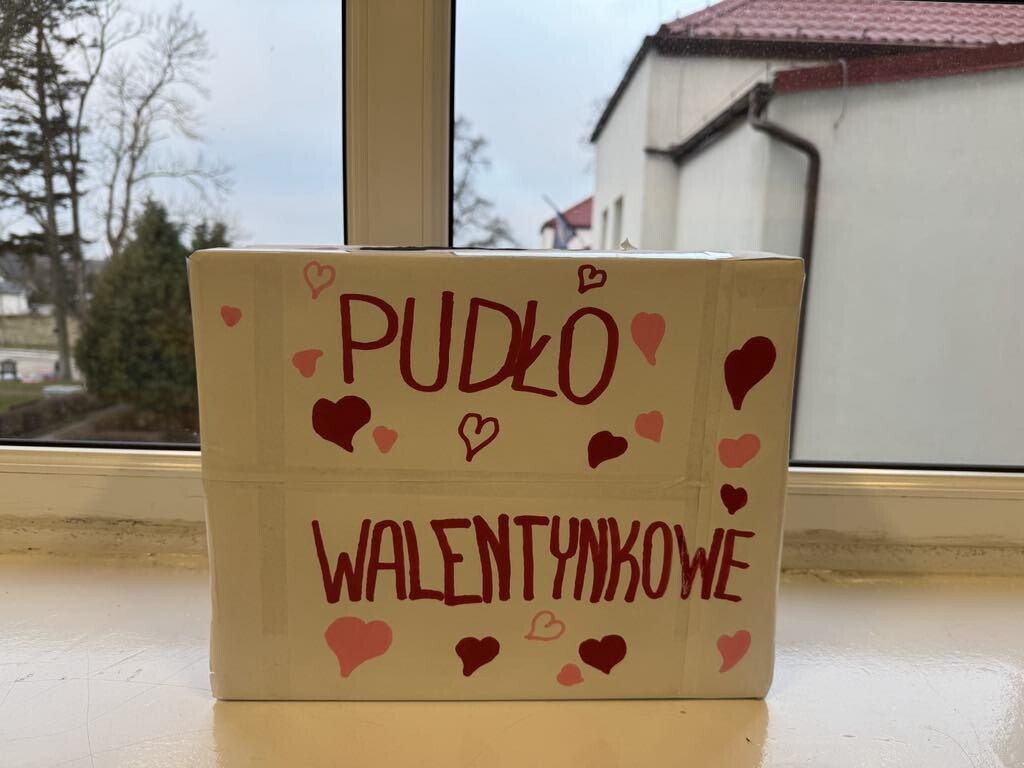 PUDŁO
WALENTYNKOWE